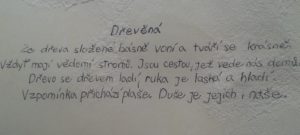 Dřevěná
Ze dřeva složené básně voní a tváří se krásně.
Vždyť mají vědomí stromů. Jsou cestou, jež vede nás domů.
Dřevo se dřevem ladí, ruka je laská a hladí.
Vzpomínka přichází plaše. Duše je jejich, i naše.